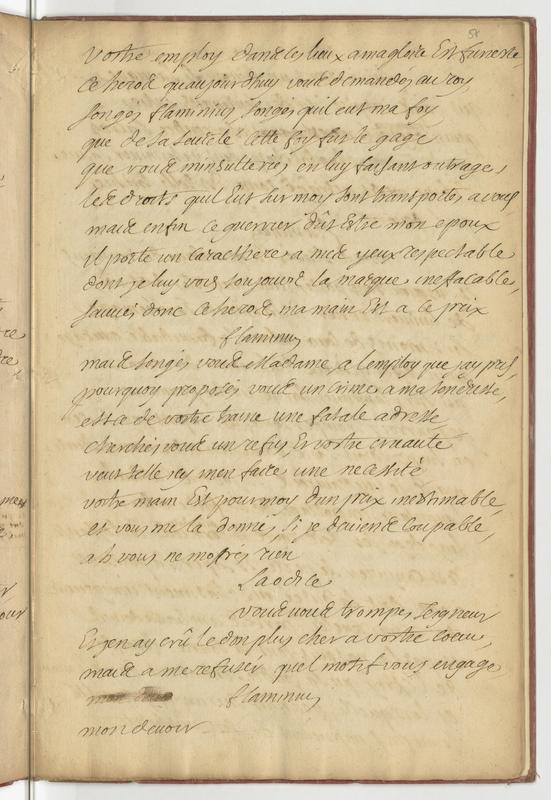 58
votre employ dans ces lieux a ma gloire Est funeste
ce heros quaujourdhuy vous demandes au roy
songés flaminius, songés quil eut ma foy
que de sa sureté cette foy fut le gage
que vous minsulteries en luy faisant outrage,
les droits quil Eut sur moy sont transportes a vous
mais enfin ce guerrier dût Estre mon epoux
il porte un caracthere a mes yeux respectable
dont je luy vois toujours la marque ineffacable,
sauvés donc ce heros, ma main Est a ce prix
flaminius
mais songés vous Madame, a lemploy que jay pris,
pourquoy proposés vous un crime a ma tendresse,
est ce de vostre haine une fatale adresse
cherchés vous un refus, Et vostre cruauté
veut elle icy men faire une necessité
votre main Est pour moy dun prix inestimable,
et vous me la donnés, si je deviens coupable
ah vous ne mofrés rien
Laodice
vous vous trompés seigneur
Et jen ay crû le don plus cher a vostre coeur,
mais a me refuser quel motif vous engage
flaminius
mon devoir